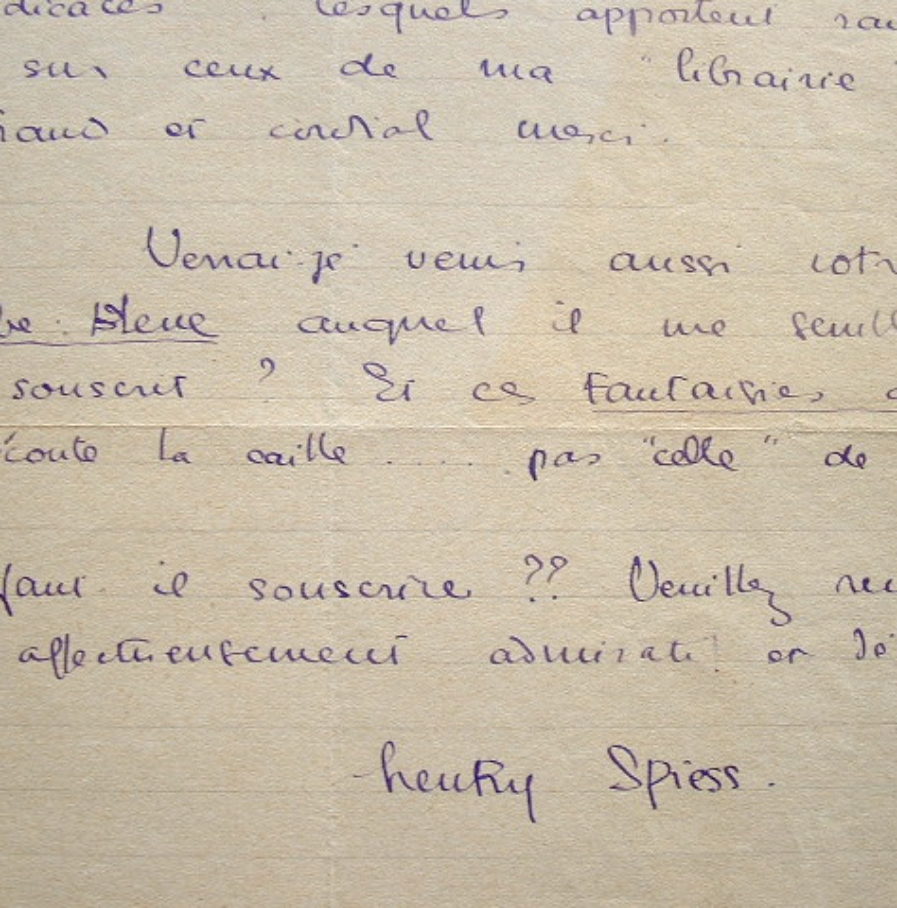 dicacés . lesquels apportent
sur ceux de ma "librairie"
et cordial merci.
Verrai-je venir aussi votr
bre bleue auquel il me sembl
souscrit ? Et ces Fantaisies,
écoute la caille ..... pas "celle" de
faut il souscrire ?? Veuillez rec
affectueusement admiratif et dé
henry Spiess.